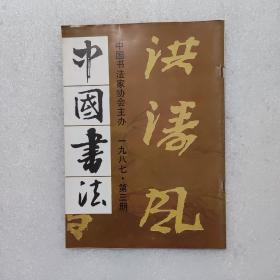 中國書法
中国书法家协会主办 一九八七·第三期
洪涛风